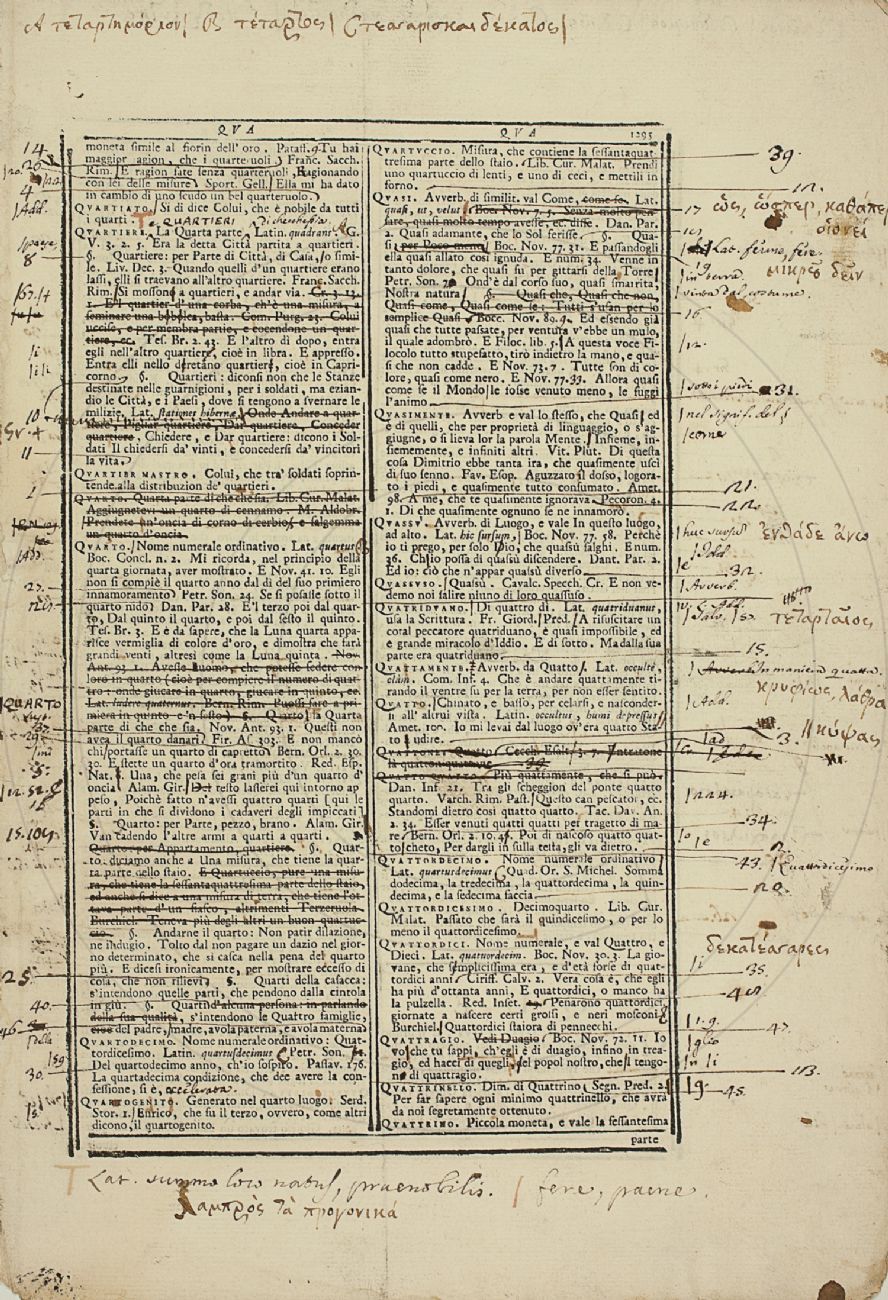 Q V A
Q V A
1295
moneta simile al fiorin dell' oro. Pataff. 9. Tu hai
maggior agion, che i quarteruoli. Franc. Sacch.
Rim. E ragion fate senza quarteruoli, Ragionando
con lei delle misure. Sport. Gell. Ella mi ha dato
in cambio di uno scudo un bel quarteruolo.
QUARTIATO. Si dice Colui, che è nobile da tutti
i quarti.
QUARTIERE. La Quarta parte. Latin. quadrans. G.
V. 3. 2. 5. Era la detta Città partita a quartieri.
§. Quartiere: per Parte di Città, di Casa, o simi-
le. Liv. Dec. 3. Quando quelli d'un quartiere erano
lassi, elli si traevano all'altro quartiere. Franc. Sacch.
Rim. Si mossono a quartieri, e andar via. Cr. 3. 13.
1. E'l quartier d'una corba, ch'è una misura,
seminare una bobolca, basta. Com. Purg. 23. Colui
uccise, e per membra partie, e cocendone un quar-
tiere, ec. Tes. Br. 2. 43. E l'altro dì dopo, entra
egli nell'altro quartiere, cioè in libra. E appresso.
Entra elli nello diretano quartiere, cioè in Capri-
corno. §. Quartieri: diconsi non che le Stanze
destinate nelle guarnigioni, per i soldati, ma ezian-
dio le Città, e i Paesi, dove si tengono a svernare le
milizie. Lat. stationes hibernæ. Onde Andare a quar-
tiere, Pigliar quartiere, Dar quartiere, Conceder
quartiere, Chiedere, e Dar quartiere: dicono i Sol-
dati Il chiedersi da' vinti, e concedersi da' vincitori
la vita.
QUARTIER MASTRO. Colui, che tra' soldati soprin-
tende alla distribuzion de' quartieri.
QUARTO. Quarta parte di che che sia. Lib. Cur. Malat.
Aggiugnetevi un quarto di cennamo. M. Aldobr.
Prendete un'oncia di corno di cerbio, e salgemma
un quarto d'oncia.
QUARTO. Nome numerale ordinativo. Lat. quartus.
Boc. Concl. n. 2. Mi ricorda, nel principio della
quarta giornata, aver mostrato. E Nov. 41. 10. Egli
non si compiè il quarto anno dal dì del suo primiero
innamoramento. Petr. Son. 24. Se si posasse sotto il
quarto nido. Dan. Par. 28. E'l terzo poi dal quar-
to, Dal quinto il quarto, e poi dal sesto il quinto.
Tes. Br. 3. E è da sapere, che la Luna quarta appa-
risce vermiglia di colore d'oro, e dimostra che sarà
grandi venti, altresì come la Luna quinta. Nov.
Ant. 93. 1. Avesse huomo, che potesse sedere con
loro in quarto (cioè per compiere il numero di quat-
tro: onde giucare in quarto, giucare in quinto, ec.
Lat. ludere quaternus. Bern. Rim. Puossi fare a pri-
miera in quinto e'n sesto). §. Quarto: la Quarta
parte di che che sia, Nov. Ant. 93. 1. Questi non
avea il quarto danari. Fir. As. 303. E non manco
chi portasse un quarto di capretto. Bern. Orl. 2. 30.
30. E stette un quarto d'ora tramortito. Red. Esp.
Nat. Una, che pesa sei grani più d'un quarto d'
oncia. Alam. Gir. Del resto lasserei qui intorno ap
peso, Poichè fatto n'avessi quattro quarti [qui le
parti in che si dividono i cadaveri degli impiccati]
§. Quarto: per Parte, pezzo, brano. Alam. Gir.
Van tadendo l'altre armi a quarti a quarti.
Quarto: per Appartamento, quartiere. §. Quar-
to, diciamo anche a Una misura, che tiene la quar-
ta parte dello staio. E Quartuccio, pure una misu-
ra, che tiene la sessantaquattresima parte dello staio,
ed anche si dice a una misura di terra, che tiene l'ot-
tava parte d'un fiasco, altrimenti Terzeruola.
Burchiel. Teneva più degli altri un buon quartuc-
cio. §. Andarne il quarto: Non patir dilazione,
ne indugio. Tolto dal non pagare un dazio nel gior-
no determinato, che si casca nella pena del quarto
più. E dicesi ironicamente, per mostrare eccesso di
cosa, che non rilievi. §. Quarti della casacca:
s'intendono quelle parti, che pendono dalla cintola
in giù. §. Quarti d'alcuna persona: in parlando
della sua qualità, s'intendono le Quattro famiglie,
cioè del padre, madre, avola paterna, e avola materna.
QUARTODECIMO. Nome numerale ordinativo: Quat-
tordicesimo. Latin. quartusdecimus. Petr. Son.
Del quartodecimo anno, ch'io sospiro. Passav. 176.
La quartadecima condizione, che dee avere la con-
fessione, si è, accelerata.
QUARTOGENITO. Generato nel quarto luogo. Serd.
Stor. 1. Enrico, che fu il terzo, ovvero, come altri
dicono, il quartogenito.
QUARTUCCIO. Misura, che contiene la sessantaquat-
tresima parte dello staio. Lib. Cur. Malat. Prendi
uno quartuccio di lenti, e uno di ceci, e mettili in
forno.
QUASI. Avverb. di similit. val Come, come se. Lat.
quasi, ut, velut. Boc. Nov. 7. 5. Senza molto pen-
sare, quasi molto tempo avesse, ec. disse. Dan. Par.
2. Quasi adamante, che lo Sol ferisse. §. Qua-
si: per Poco meno. Boc. Nov. 77. 31. E passandogli
ella quasi allato così ignuda. E num. 34. Venne in
tanto dolore, che quasi fu per gittarsi della Torre.
Petr. Son. 7. Ond'è dal corso suo, quasi smarrita,
Nostra natura. §. Quasi che, Quasi che non,
Quasi come, Quasi come se: Tutti s'usan per lo
semplice Quasi. Bocc. Nov. 89. 9. Ed essendo già
quasi che tutte passate, per ventura v'ebbe un mulo,
il quale adombrò. E Filoc. lib. 5. A questa voce Fi-
locolo tutto stupefatto, tirò indietro la mano, e qua-
si che non cadde. E Nov. 73. 7. Tutte son di co-
lore, quasi come nero. E Nov. 77. 33. Allora quasi
come se il Mondo le fosse venuto meno, le fuggì
l'animo.
QUASIMENTE. Avverb. e val lo stesso, che Quasi, ed
è di quelli, che per proprietà di linguaggio, o s'ag-
giugne, o si lieva lor la parola Mente. Insieme, in-
siememente, e infiniti altri. Vit. Plut. Di questa
cosa Dimitrio ebbe tanta ira, che quasimente uscì
di suo senno. Fav. Esop. Aguzzato il dosso, logora-
to i piedi, e quasimente tutto consumato. Amet.
98. A me, che te quasimente ignorava. Pecoron. 4.
1. Di che quasimente ognuno se ne innamorò.
QUASSÙ. Avverb. di Luogo, e vale In questo luogo,
ad alto. Lat. hic sursum. Boc. Nov. 77. 58. Perchè
io ti prego, per solo Dio, che quassù salghi. E num.
36. Chi io possa di quassù discendere. Dant. Par. 2.
Ed io: ciò che n'appar quassù diverso.
QUASSUSO. Quassù. Cavalc. Specch. Cr. E non ve-
demo noi salire niuno di loro quassuso.
QUATRIDUANO. Di quattro dì. Lat. quatriduanus,
usa la Scrittura. Fr. Giord. Pred. A risuscitare un
cotal peccatore quatriduano, è quasi impossibile, ed
è grande miracolo d'Iddio. E di sotto. Ma dalla sua
parte era quatriduano.
QUATTAMENTE. Avverb. da Quatto. Lat. occultè,
clàm. Com. Inf. 4. Che è andare quattamente ti-
rando il ventre su per la terra, per non esser sentito.
QUATTO. Chinato, e basso, per celarsi, e nasconder-
si all' altrui vista. Latin. occultus, humi depressus.
Amet. 101. Io mi levai dal luogo ov'era quatto Sta
to a udire.
Quatto quatto: Più quattamente, che si può.
Dan. Inf. 21. Tra gli scheggion del ponte quatto
quatto. Varch. Rim. Past. Questo can pescator, ec.
Standomi dietro così quatto quatto. Tac. Dav. An.
2. 34. Esser venuti quatti quatti pei tragetto di ma-
re. Bern. Orl. 2. 10. 46. Poi di nascoso quatto quat-
to, cheto, Per dargli in sulla testa, gli va dietro.
QUATTORDECIMO. Nome numerale ordinativo.
Lat. quartusdecimus. Quad. Or. S. Michel. Somma
dodecima, la tredecima, la quattordecima, la quin-
decima, e la sedecima faccia.
QUATTORDICESIMO. Decimoquarto. Lib. Cur.
Malat. Passato che sarà il quindicesimo, o per lo
meno il quattordicesimo.
QUATTORDICI. Nome numerale, e val Quattro, e
Dieci. Lat. quatuordecim. Boc. Nov. 30. 3. La gio-
vane, che semplicissima era, e d'età forse di quat-
tordici anni. Ciriff. Calv. 2. Vera cosa è, che egli
ha più d'ottanta anni, E quattordici, o manco ha
la pulzella. Red. Inset. Penarono quattordici
giornate a nascere certi grossi, e neri mosconi.
Burchiel. Quattordici staiora di pennecchi.
QUATTRAGIO. Vedi Duagio. Boc. Nov. 72. 11. Io
vo', che tu sappi, ch'egli è di duagio, infino in trea-
gio, ed hacci di quegli del popol nostro, che'l tengo-
no di quattragio.
QUATTRINELLO. Dim. di Quattrino. Segn. Pred. 2.
Per far sapere ogni minimo quattrinello, che avrà
da noi segretamente ottenuto.
QUATTRINO. Piccola moneta, e vale la sessantesima
parte
39.
ὡς, ὥσπερ, καθάπερ
οἱονεί
Lat. ferme, fere.
31.
nel signif. del §
come
21.
ἐνθάδε ἄνω
32.
Avverb.
τεταρταῖος
15.
In maniera quatta.
κρυφίως, λάθρα
Add.
κύψας
34.
43. Quattordicesimo
20.
δεκατέσσαρες
35.
45.
14
Add.
8
10
11
QUARTO
25.
40.
30.
Lat. summo loco natus, praenobilis. | fere, paene.
λαμπρὸς τὰ προγονικά